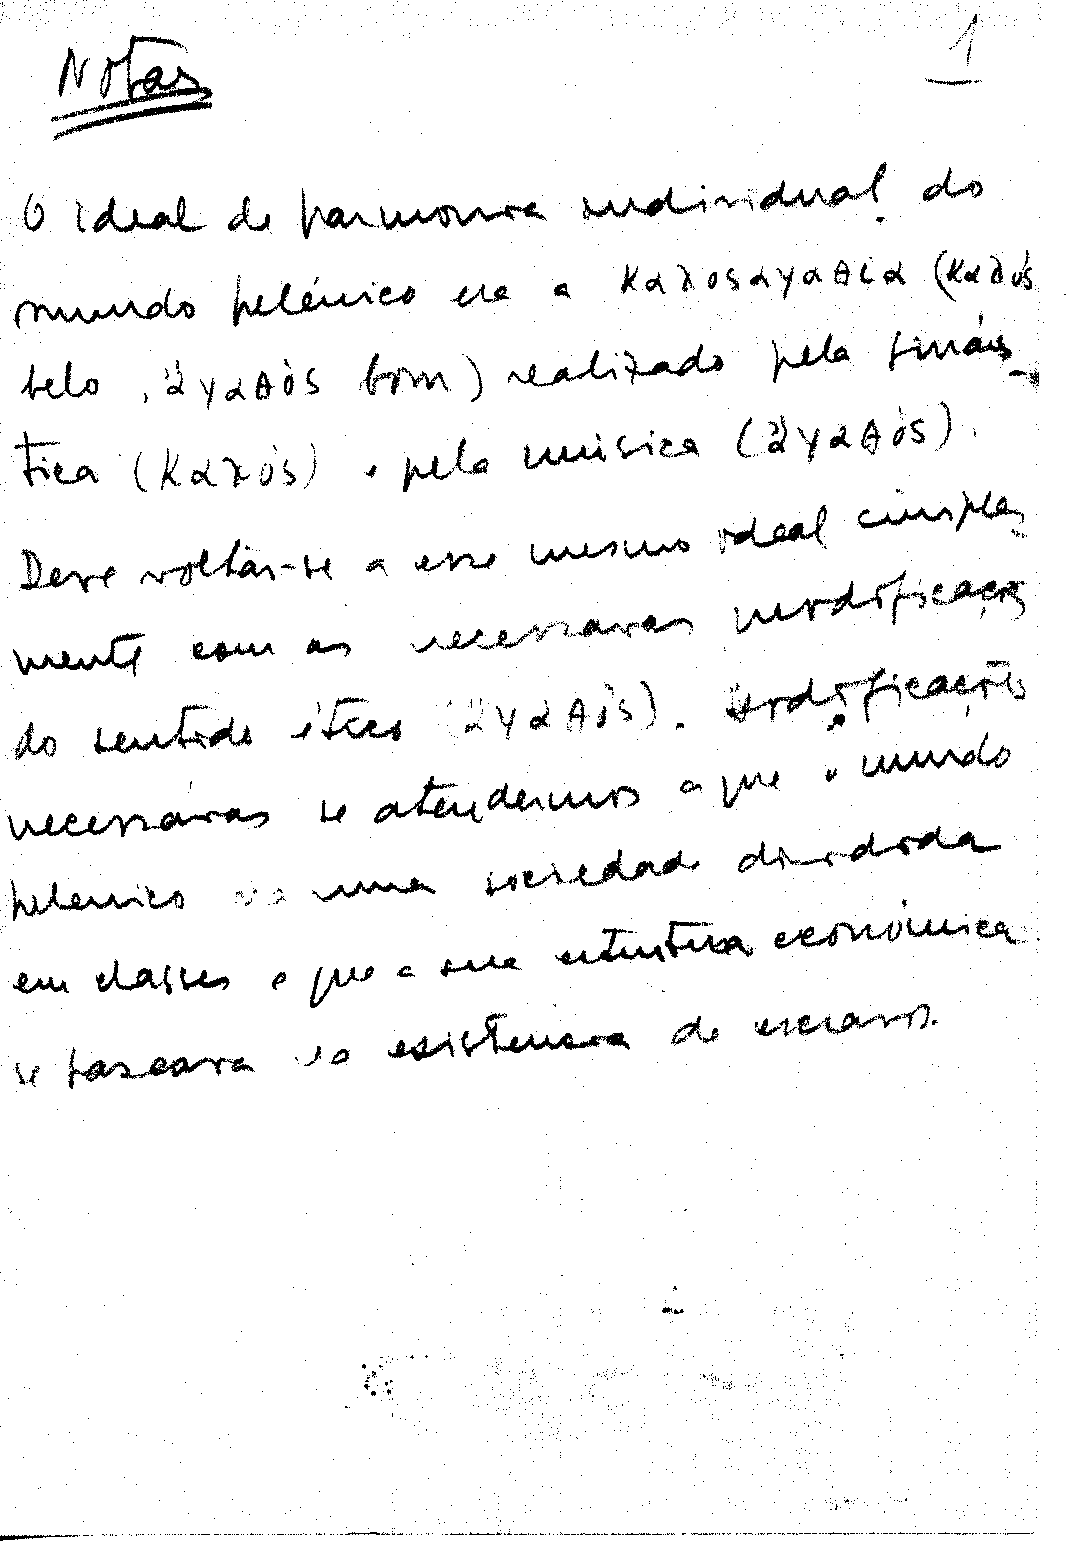 Notas
1
O ideal de harmonia individual do
mundo helénico era a καλοσαγαθία (καλός
belo, ἀγαθός bom) realizado pela ginás-
tica (καλός) e pela música (ἀγαθός).
Deve voltar-se a esse mesmo ideal simples-
mente com as necessarias modificações
do sentido ético (ἀγαθός). Modificações
necessárias se atendermos a que o mundo
helenico era uma sociedade dividida
em classes e que a sua estrutura económica
se baseava na existencia de escravos.